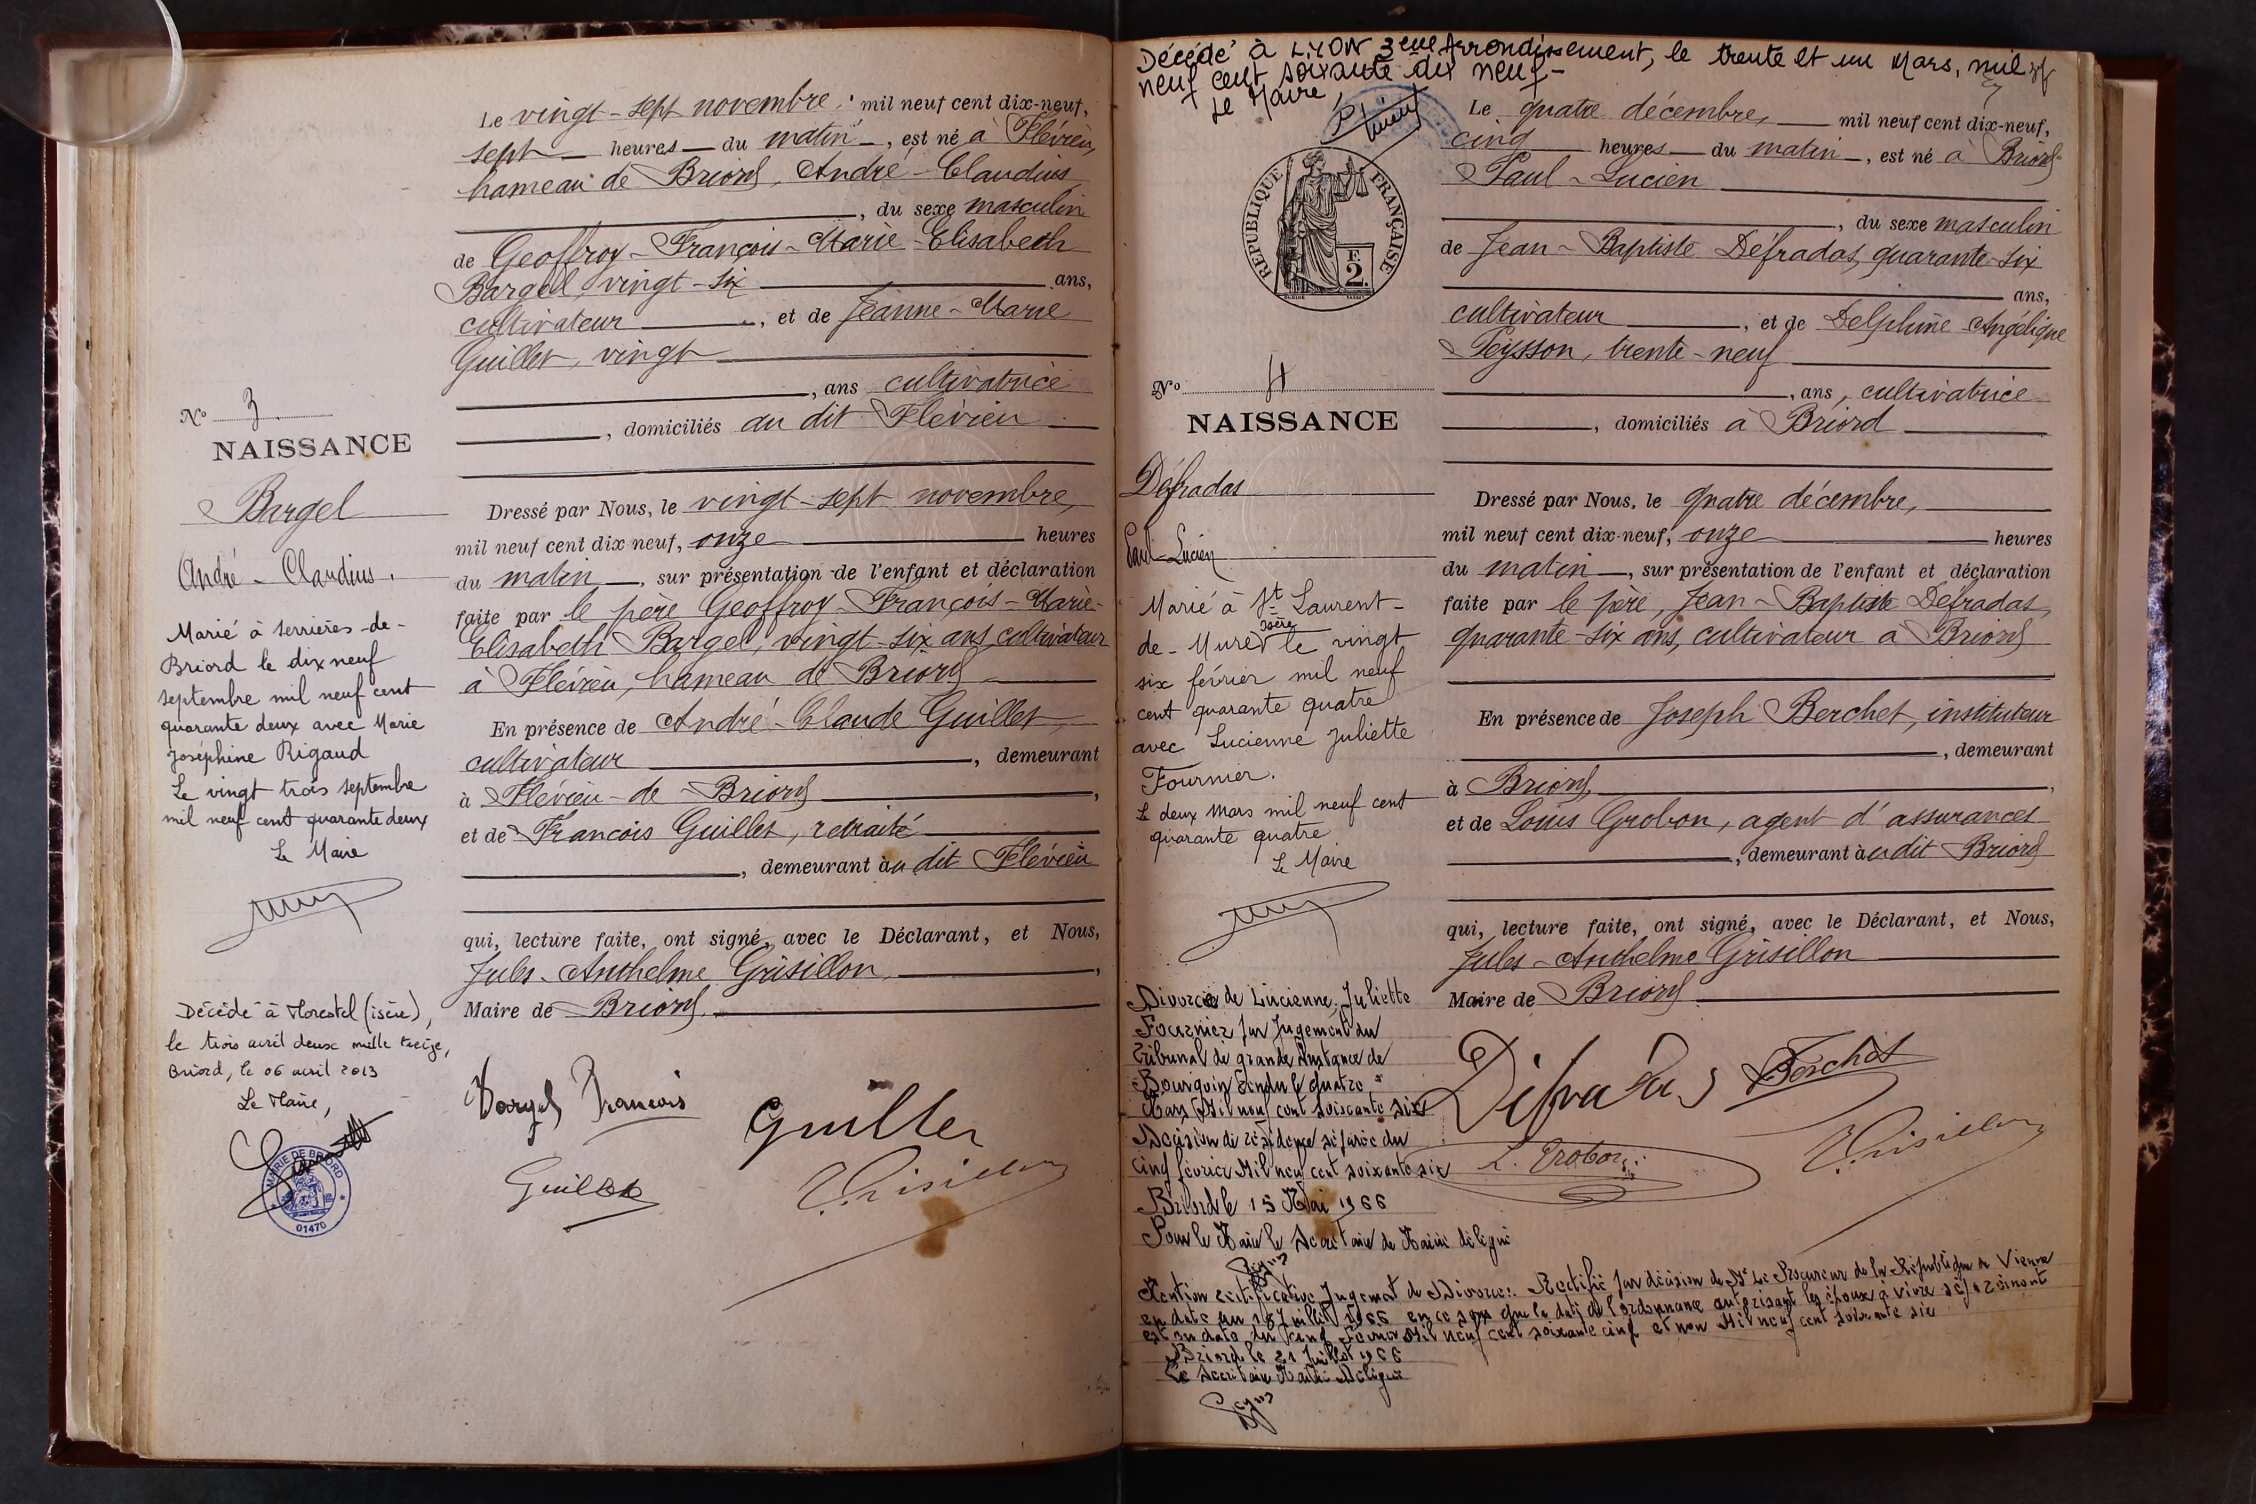 Le vingt-sept novembre, mil neuf cent dix-neuf,
sept heures du matin, est né à Flévieu,
hameau de Briord, André-Claudius
, du sexe masculin
de Geoffroy-François-Marie-Elisabeth
Bargel, vingt-six ans,
cultivateur, et de Jeanne-Marie
Guillet, vingt
, ans cultivatrice
, domiciliés au dit Flévieu
Nº 3
NAISSANCE
Bargel
André-Claudius.
Dressé par Nous, le vingt-sept novembre,
mil neuf cent dix neuf, onze heures
du matin, sur présentation de l'enfant et déclaration
faite par le père Geoffroy-François-Marie-
Elisabeth Bargel, vingt-six ans, cultivateur
à Flévieu, hameau de Briord
En présence de André-Claude Guillet,
cultivateur, demeurant
à Flévieu-de-Briord,
et de François Guillet, retraité
, demeurant au dit Flévieu
qui, lecture faite, ont signé, avec le Déclarant, et Nous,
Jules-Anthelme Grisillon,
Maire de Briord.
Marié à Serrières-de-
Briord le dix neuf
septembre mil neuf cent
quarante deux avec Marie
Joséphine Rigaud
Le vingt trois septembre
mil neuf cent quarante deux
Le Maire
Décédé à Morestel (isère),
le trois avril deux mille treize,
Briord, le 06 avril 2013
Le Maire,
MAIRIE DE BRIORD
01470
Bargel François
Guillet
Guillet
Grisillon
Décédé à LYON 3eme Arrondissement, le trente et un Mars, mil
neuf cent soixante dix neuf-
Le Maire,
REPUBLIQUE FRANÇAISE
F.
2.
Le quatre décembre, mil neuf cent dix-neuf,
cinq heures du matin, est né à Briord
Paul-Lucien
, du sexe masculin
de Jean-Baptiste Défradas, quarante-six
ans,
cultivateur, et de Delphine Angélique
Peysson, trente-neuf
, ans, cultivatrice
, domiciliés à Briord
Nº 4
NAISSANCE
Défradas
Paul-Lucien
Dressé par Nous, le quatre décembre,
mil neuf cent dix-neuf, onze heures
du matin, sur présentation de l'enfant et déclaration
faite par le père, Jean-Baptiste Défradas,
quarante-six ans, cultivateur à Briord
En présence de Joseph Berchet, instituteur
, demeurant
à Briord,
et de Louis Grobon, agent d'assurances
, demeurant audit Briord
qui, lecture faite, ont signé, avec le Déclarant, et Nous,
Jules-Anthelme Grisillon
Maire de Briord
Marié à St Laurent-
isère
de-Mure le vingt
six février mil neuf
cent quarante quatre
avec Lucienne Juliette
Fournier.
Le deux mars mil neuf cent
quarante quatre
Le Maire
Divorcé de Lucienne, Juliette
Fournier par Jugement du
Tribunal de grande Instance de
Bourgoin rendu le quatre
Mars Mil neuf cent soixante six
Décision de résidence séparée du
cinq février Mil neuf cent soixante six
Briord le 15 Mai 1966
Pour le Maire le Secrétaire de Mairie délégué
Défradas Berchet
L. Grobon
Grisillon
Mention rectificative Jugement de Divorce: Rectifié par décision de Mr Le Procureur de la République de Vienne
en date du 18 Juillet 1966 en ce sens que la date de l'ordonnance autorisant les époux à vivre séparément
est en date du cinq Février Mil neuf cent soixante cinq et non Mil neuf cent soixante six
Briord le 21 Juillet 1966
Le Secrétaire Mairie Délégué